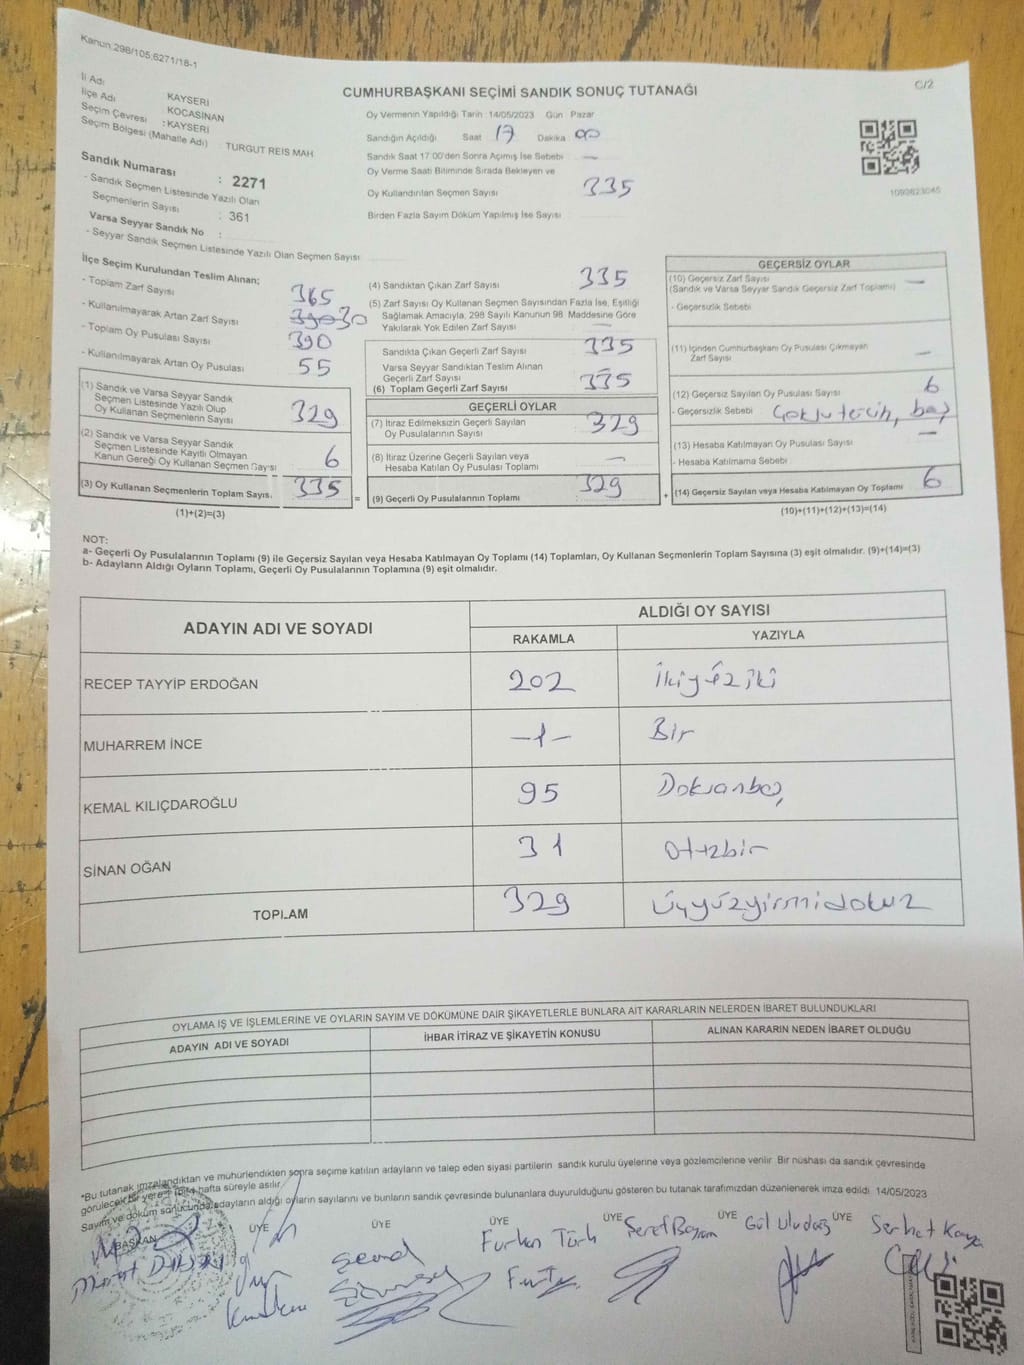 Kanun:298/105,6271/18-1
C/2
CUMHURBAŞKANI SEÇİMİ SANDIK SONUÇ TUTANAĞI
İl Adı KAYSERİ
İlçe Adı KOCASİNAN
Seçim Çevresi :KAYSERİ
Seçim Bölgesi (Mahalle Adı) TURGUT REİS MAH
Sandık Numarası : 2271
- Sandık Seçmen Listesinde Yazılı Olan
Seçmenlerin Sayısı : 361
Varsa Seyyar Sandık No :
- Seyyar Sandık Seçmen Listesinde Yazılı Olan Seçmen Sayısı
Oy Vermenin Yapıldığı Tarih :14/05/2023 Gün Pazar
Sandığın Açıldığı Saat 17 Dakika 00
Sandık Saat 17:00'den Sonra Açımış İse Sebebi —
Oy Verme Saati Bitiminde Sırada Bekleyen ve
Oy Kullandırılan Seçmen Sayısı 335
Birden Fazla Sayım Döküm Yapılmış İse Sayısı
1093823045
İlçe Seçim Kurulundan Teslim Alınan;
- Toplam Zarf Sayısı 365
- Kullanılmayarak Artan Zarf Sayısı 30
- Toplam Oy Pusulası Sayısı 390
- Kullanılmayarak Artan Oy Pusulası 55
(1) Sandık ve Varsa Seyyar Sandık
Seçmen Listesinde Yazılı Olup
Oy Kullanan Seçmenlerin Sayısı 329
(2) Sandık ve Varsa Seyyar Sandık
Seçmen Listesinde Kayıtlı Olmayan
Kanun Gereği Oy Kullanan Seçmen Sayısı 6
(3) Oy Kullanan Seçmenlerin Toplam Sayıs. 335 =
(1)+(2)=(3)
(4) Sandıktan Çıkan Zarf Sayısı 335
(5) Zarf Sayısı Oy Kullanan Seçmen Sayısından Fazla İse, Eşitliği
Sağlamak Amacıyla, 298 Sayılı Kanunun 98 Maddesine Göre
Yakılarak Yok Edilen Zarf Sayısı —
Sandıkta Çıkan Geçerli Zarf Sayısı 335
Varsa Seyyar Sandıktan Teslim Alınan
Geçerli Zarf Sayısı —
(6) Toplam Geçerli Zarf Sayısı 335
GEÇERLİ OYLAR
(7) İtiraz Edilmeksizin Geçerli Sayılan
Oy Pusulalarının Sayısı 329
(8) İtiraz Üzerine Geçerli Sayılan veya
Hesaba Katılan Oy Pusulası Toplamı —
(9) Geçerli Oy Pusulalarının Toplamı 329 +
GEÇERSİZ OYLAR
(10) Geçersiz Zarf Sayısı —
(Sandık ve Varsa Seyyar Sandık Geçersiz Zarf Toplamı)
- Geçersizlik Sebebi
(11) İçinden Cumhurbaşkanı Oy Pusulası Çıkmayan
Zarf Sayısı —
(12) Geçersiz Sayılan Oy Pusulası Sayısı 6
- Geçersizlik Sebebi Çoklu tercih, boş
(13) Hesaba Katılmayan Oy Pusulası Sayısı —
- Hesaba Katılmama Sebebi
(14) Geçersiz Sayılan veya Hesaba Katılmayan Oy Toplamı 6
(10)+(11)+(12)+(13)=(14)
NOT:
a- Geçerli Oy Pusulalarının Toplamı (9) ile Geçersiz Sayılan veya Hesaba Katılmayan Oy Toplamı (14) Toplamları, Oy Kullanan Seçmenlerin Toplam Sayısına (3) eşit olmalıdır. (9)+(14)=(3)
b- Adayların Aldığı Oyların Toplamı, Geçerli Oy Pusulalarının Toplamına (9) eşit olmalıdır.
ADAYIN ADI VE SOYADI
ALDIĞI OY SAYISI
RAKAMLA YAZIYLA
RECEP TAYYİP ERDOĞAN 202 İkiyüziki
MUHARREM İNCE -1- Bir
KEMAL KILIÇDAROĞLU 95 Doksanbeş
SİNAN OĞAN 31 Otuzbir
TOPLAM 329 Üçyüzyirmidokuz
OYLAMA İŞ VE İŞLEMLERİNE VE OYLARIN SAYIM VE DÖKÜMÜNE DAİR ŞİKAYETLERLE BUNLARA AİT KARARLARIN NELERDEN İBARET BULUNDUKLARI
ADAYIN ADI VE SOYADI İHBAR İTİRAZ VE ŞİKAYETİN KONUSU ALINAN KARARIN NEDEN İBARET OLDUĞU
*Bu tutanak imzalandıktan ve mühürlendikten sonra seçime katılın adayların ve talep eden siyasi partilerin sandık kurulu üyelerine veya gözlemcilerine verilir Bir nüshası da sandık çevresinde
görülecek bir yere bir hafta süreyle asılır.
Sayım ve döküm sonucunda adayların aldığı oyların sayılarını ve bunların sandık çevresinde bulunanlara duyurulduğunu gösteren bu tutanak tarafımızdan düzenlenerek imza edildi 14/05/2023
BAŞKAN ÜYE ÜYE ÜYE ÜYE ÜYE ÜYE
Furkan Türk Şeref Bayram Gül Uludağ Serhat Kaya